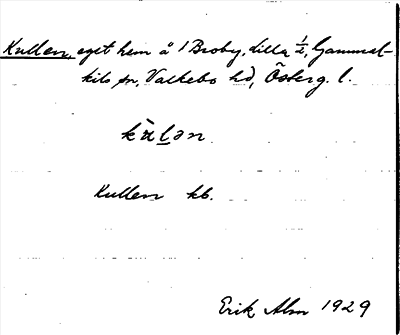 Kullen, eget hem å 1 Broby, Lilla ½, Gammal-
kils sn, Valkebo hd, Österg. l.
kàlən
Kullen kb.
Erik Alm 1929